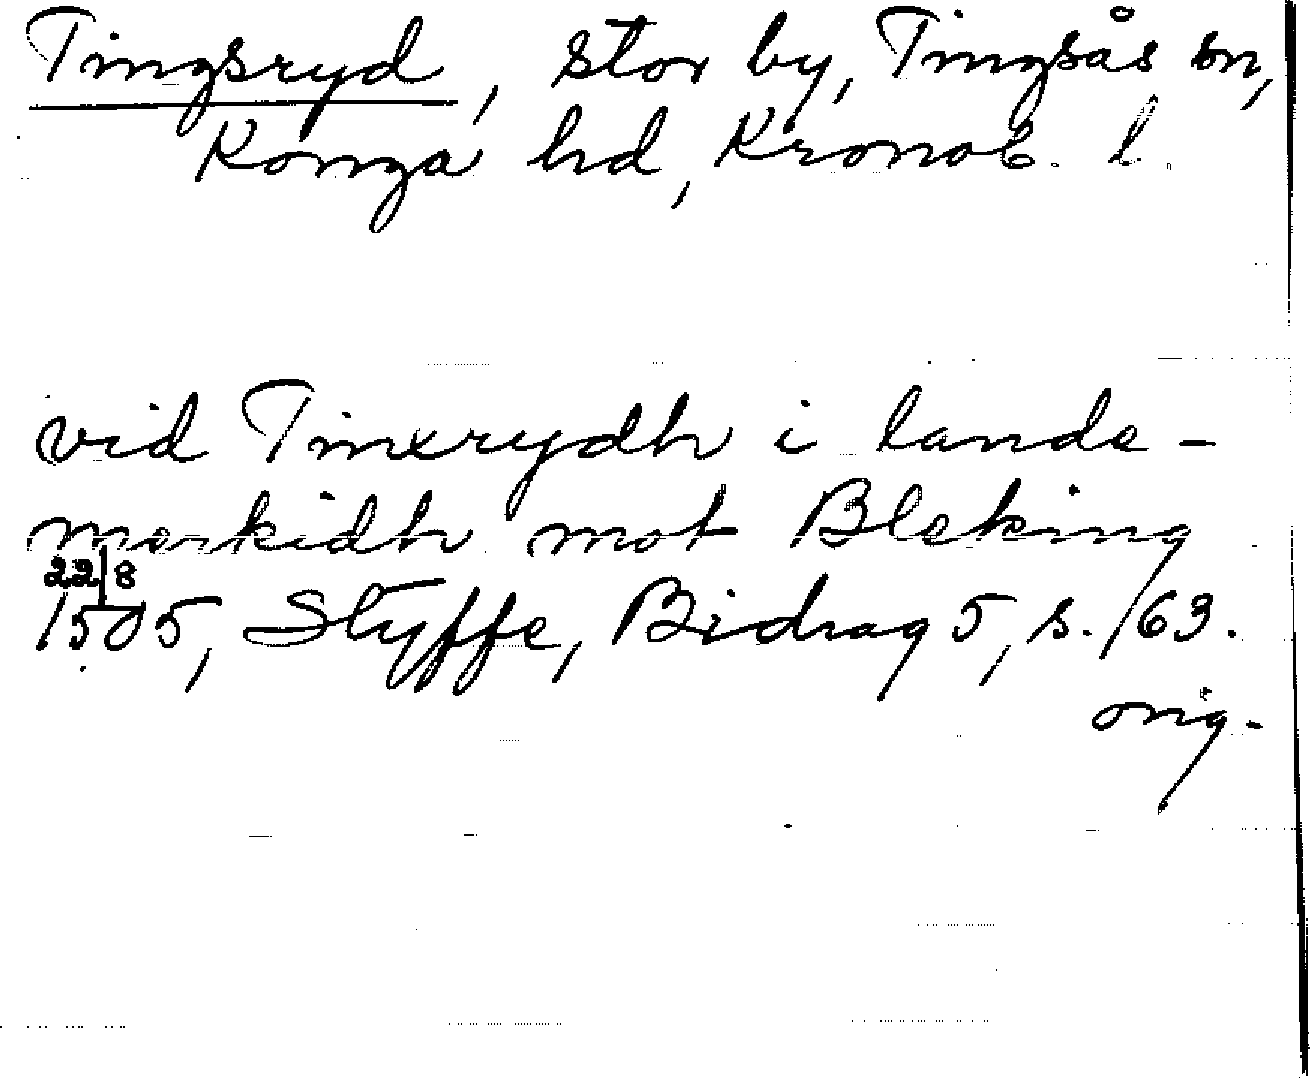 Tingsryd, stor by, Tingsås sn,
Konga hd, Kronob. l.
vid Tinxrydh i lande-
merkidh mot Bleking
22/8
1505, Styffe, Bidrag 5, s. 163.
orig.